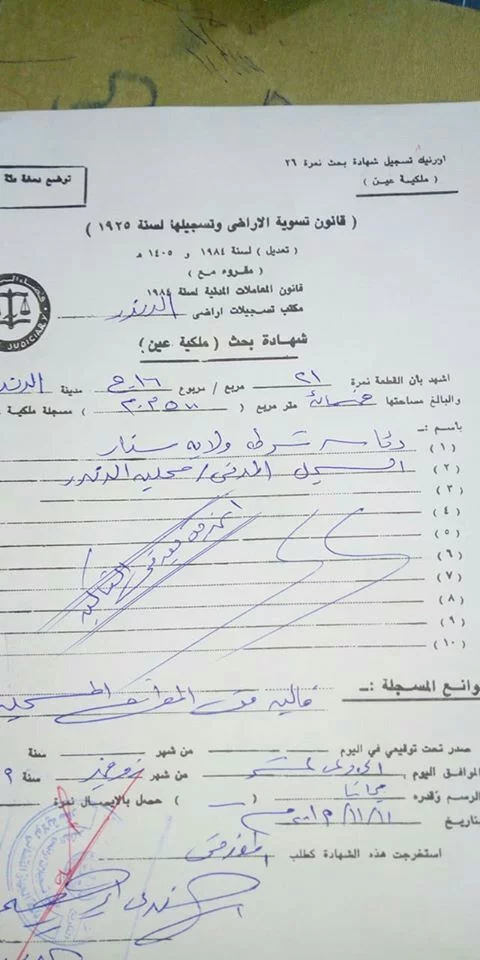 اورنيك تسجيل شهادة بحث نمرة ٢٦
( ملكية عين )
توضع دمغة فئة
( )
( قانون تسوية الاراضى وتسجيلها لسنة ١٩٢٥ )
( تعديل ) لسنة ١٩٨٤ و ١٤٠٥ هـ
( مقروء مع )
قانون المعاملات المدنية لسنة ١٩٨٤
مكتب تسجيلات اراضى الدندر
JUDICIARY
شهادة بحث ( ملكية عين )
اشهد بأن القطعة نمرة ٢١ مربع / مربوع ١٦ ج مدينة
والبالغ مساحتها خمسمائة متر مربع ( ٥٠٠ م م ) مسجلة ملكية
بأسم :ـ
(١) رئاسة شرطة ولاية سنار
(٢) السجل المدنى / محلية الدندر
(٣)
(٤)
(٥)
(٦)
(٧)
(٨)
(٩)
(١٠)
وانع المسجلة :ـ
خالية من الموانع
صدر تحت توقيعي في اليوم من شهر سنة
الموافق اليوم الحادى عشر من شهر نوفمبر سنة
الرسم وقدره مجانا ( ) حصل بالايصال نمرة
بتاريخ ١١/١١/
استخرجت هذه الشهادة كطلب المفوض